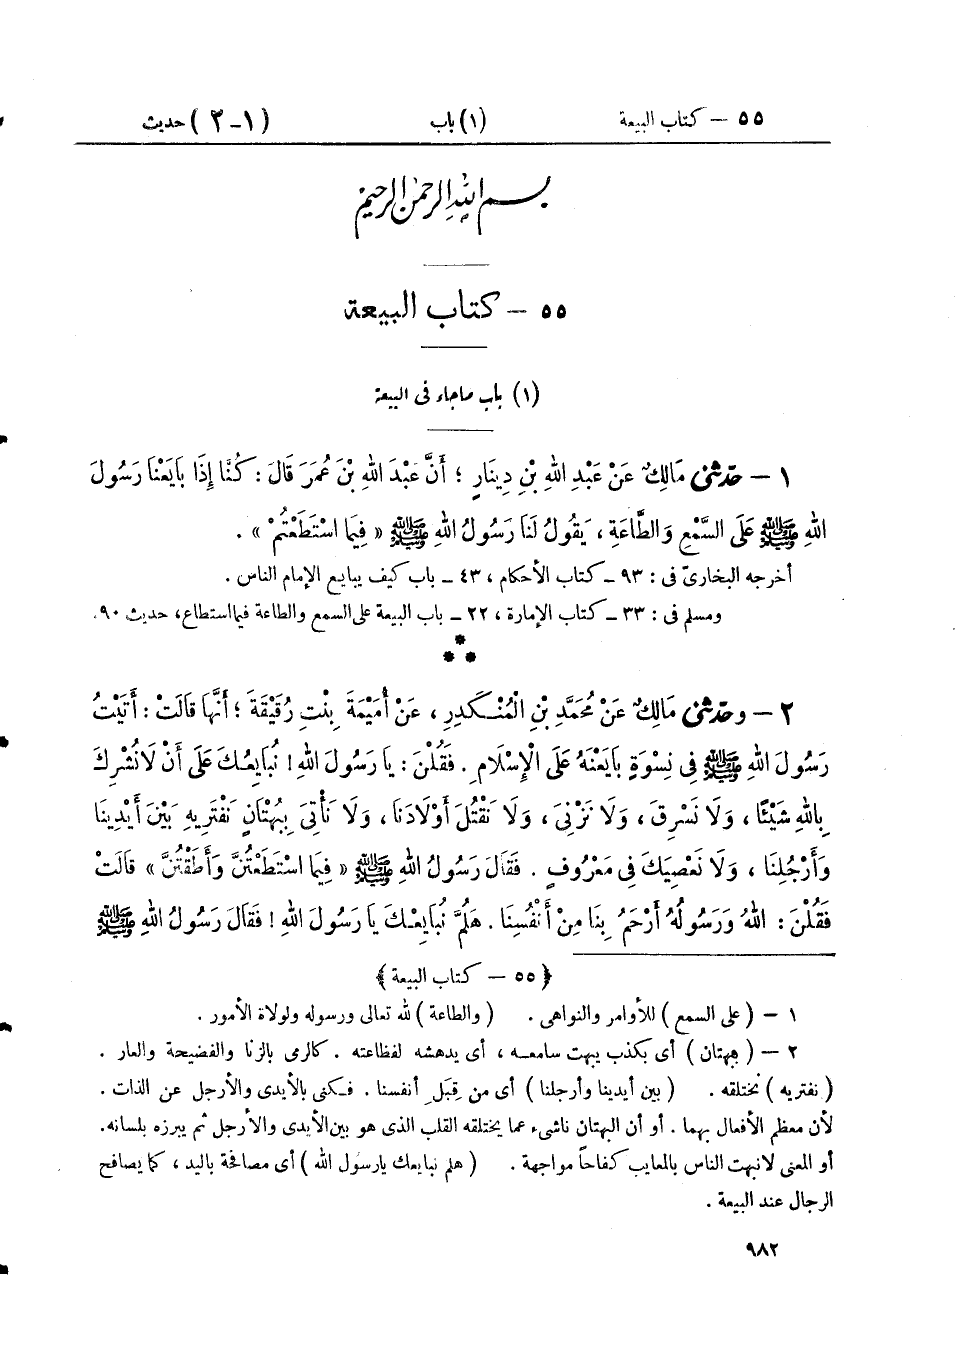 ٥٥ – كتاب البيعة (١) باب (١-٢) حديث
بسم الله الرحمن الرحيم
٥٥ – كتاب البيعة
(١) باب ماجاء فى البيعة
١ – حدّثنى مَالِكٌ عَنْ عَبْدِ اللهِ بْنِ دِينَارٍ ؛ أَنَّ عَبْدَ اللهِ بْنَ عُمَرَ قَالَ : كُنَّا إِذَا بَايَعْنَا رَسُولَ
اللهِ ﷺ عَلَى السَّمْعِ وَالطَّاعَةِ ، يَقُولُ لَنَا رَسُولُ اللهِ ﷺ « فِيمَا اسْتَطَعْتُمْ » .
أخرجه البخارىّ فى : ٩٣ ـ كتاب الأحكام ، ٤٣ ـ باب كيف يبايع الإمام الناس .
ومسلم فى : ٣٣ ـ كتاب الإمارة ، ٢٢ ـ باب البيعة على السمع والطاعة فيما استطاع، حديث ٩٠.
*
* *
٢ – وحدّثنى مَالِكٌ عَنْ مُحَمَّدِ بْنِ الْمُنْكَدِرِ ، عَنْ أُمَيْمَةَ بِنْتِ رُقَيْقَةَ ؛ أَنَّهَا قَالَتْ : أَتَيْتُ
رَسُولَ اللهِ ﷺ فِى نِسْوَةٍ بَايَعْنَهُ عَلَى الْإِسْلَامِ . فَقُلْنَ : يَا رَسُولَ اللهِ ! نُبَايِعُكَ عَلَى أَنْ لَا نُشْرِكَ
بِاللهِ شَيْئًا ، وَلَا نَسْرِقَ ، وَلَا نَزْنِىَ ، وَلَا نَقْتُلَ أَوْلَادَنَا ، وَلَا نَأْتِىَ بِبُهْتَانٍ نَفْتَرِيهِ بَيْنَ أَيْدِينَا
وَأَرْجُلِنَا ، وَلَا نَعْصِيَكَ فِى مَعْرُوفٍ . فَقَالَ رَسُولُ اللهِ ﷺ « فِيمَا اسْتَطَعْتُنَّ وَأَطَقْتُنَّ » قَالَتْ
فَقُلْنَ : اللهُ وَرَسُولُهُ أَرْحَمُ بِنَا مِنْ أَنْفُسِنَا . هَلُمَّ نُبَايِعْكَ يَا رَسُولَ اللهِ ! فَقَالَ رَسُولُ اللهِ ﷺ
﴿ ٥٥ – كتاب البيعة ﴾
١ – ( على السمع ) للأوامر والنواهى . ( والطاعة ) لله تعالى ورسوله ولولاة الأمور .
٢ – ( ببهتان ) أى بكذب يبهت سامعه ، أى يدهشه لفظاعته . كالرمى بالزنا والفضيحة والعار .
( نفتريه ) نختلقه . ( بين أيدينا وأرجلنا ) أى من قِبَل أنفسنا . فكنى بالأيدى والأرجل عن الذات .
لأن معظم الأفعال بهما . أو أن البهتان ناشىء عما يختلقه القلب الذى هو بين الأيدى والأرجل ثم يبرزه بلسانه.
أو المعنى لا نبهت الناس بالمعايب كفاحاً مواجهة . ( هلم نبايعك يارسول الله ) أى مصافحة باليد ، كما يصافح
الرجال عند البيعة .
٩٨٢